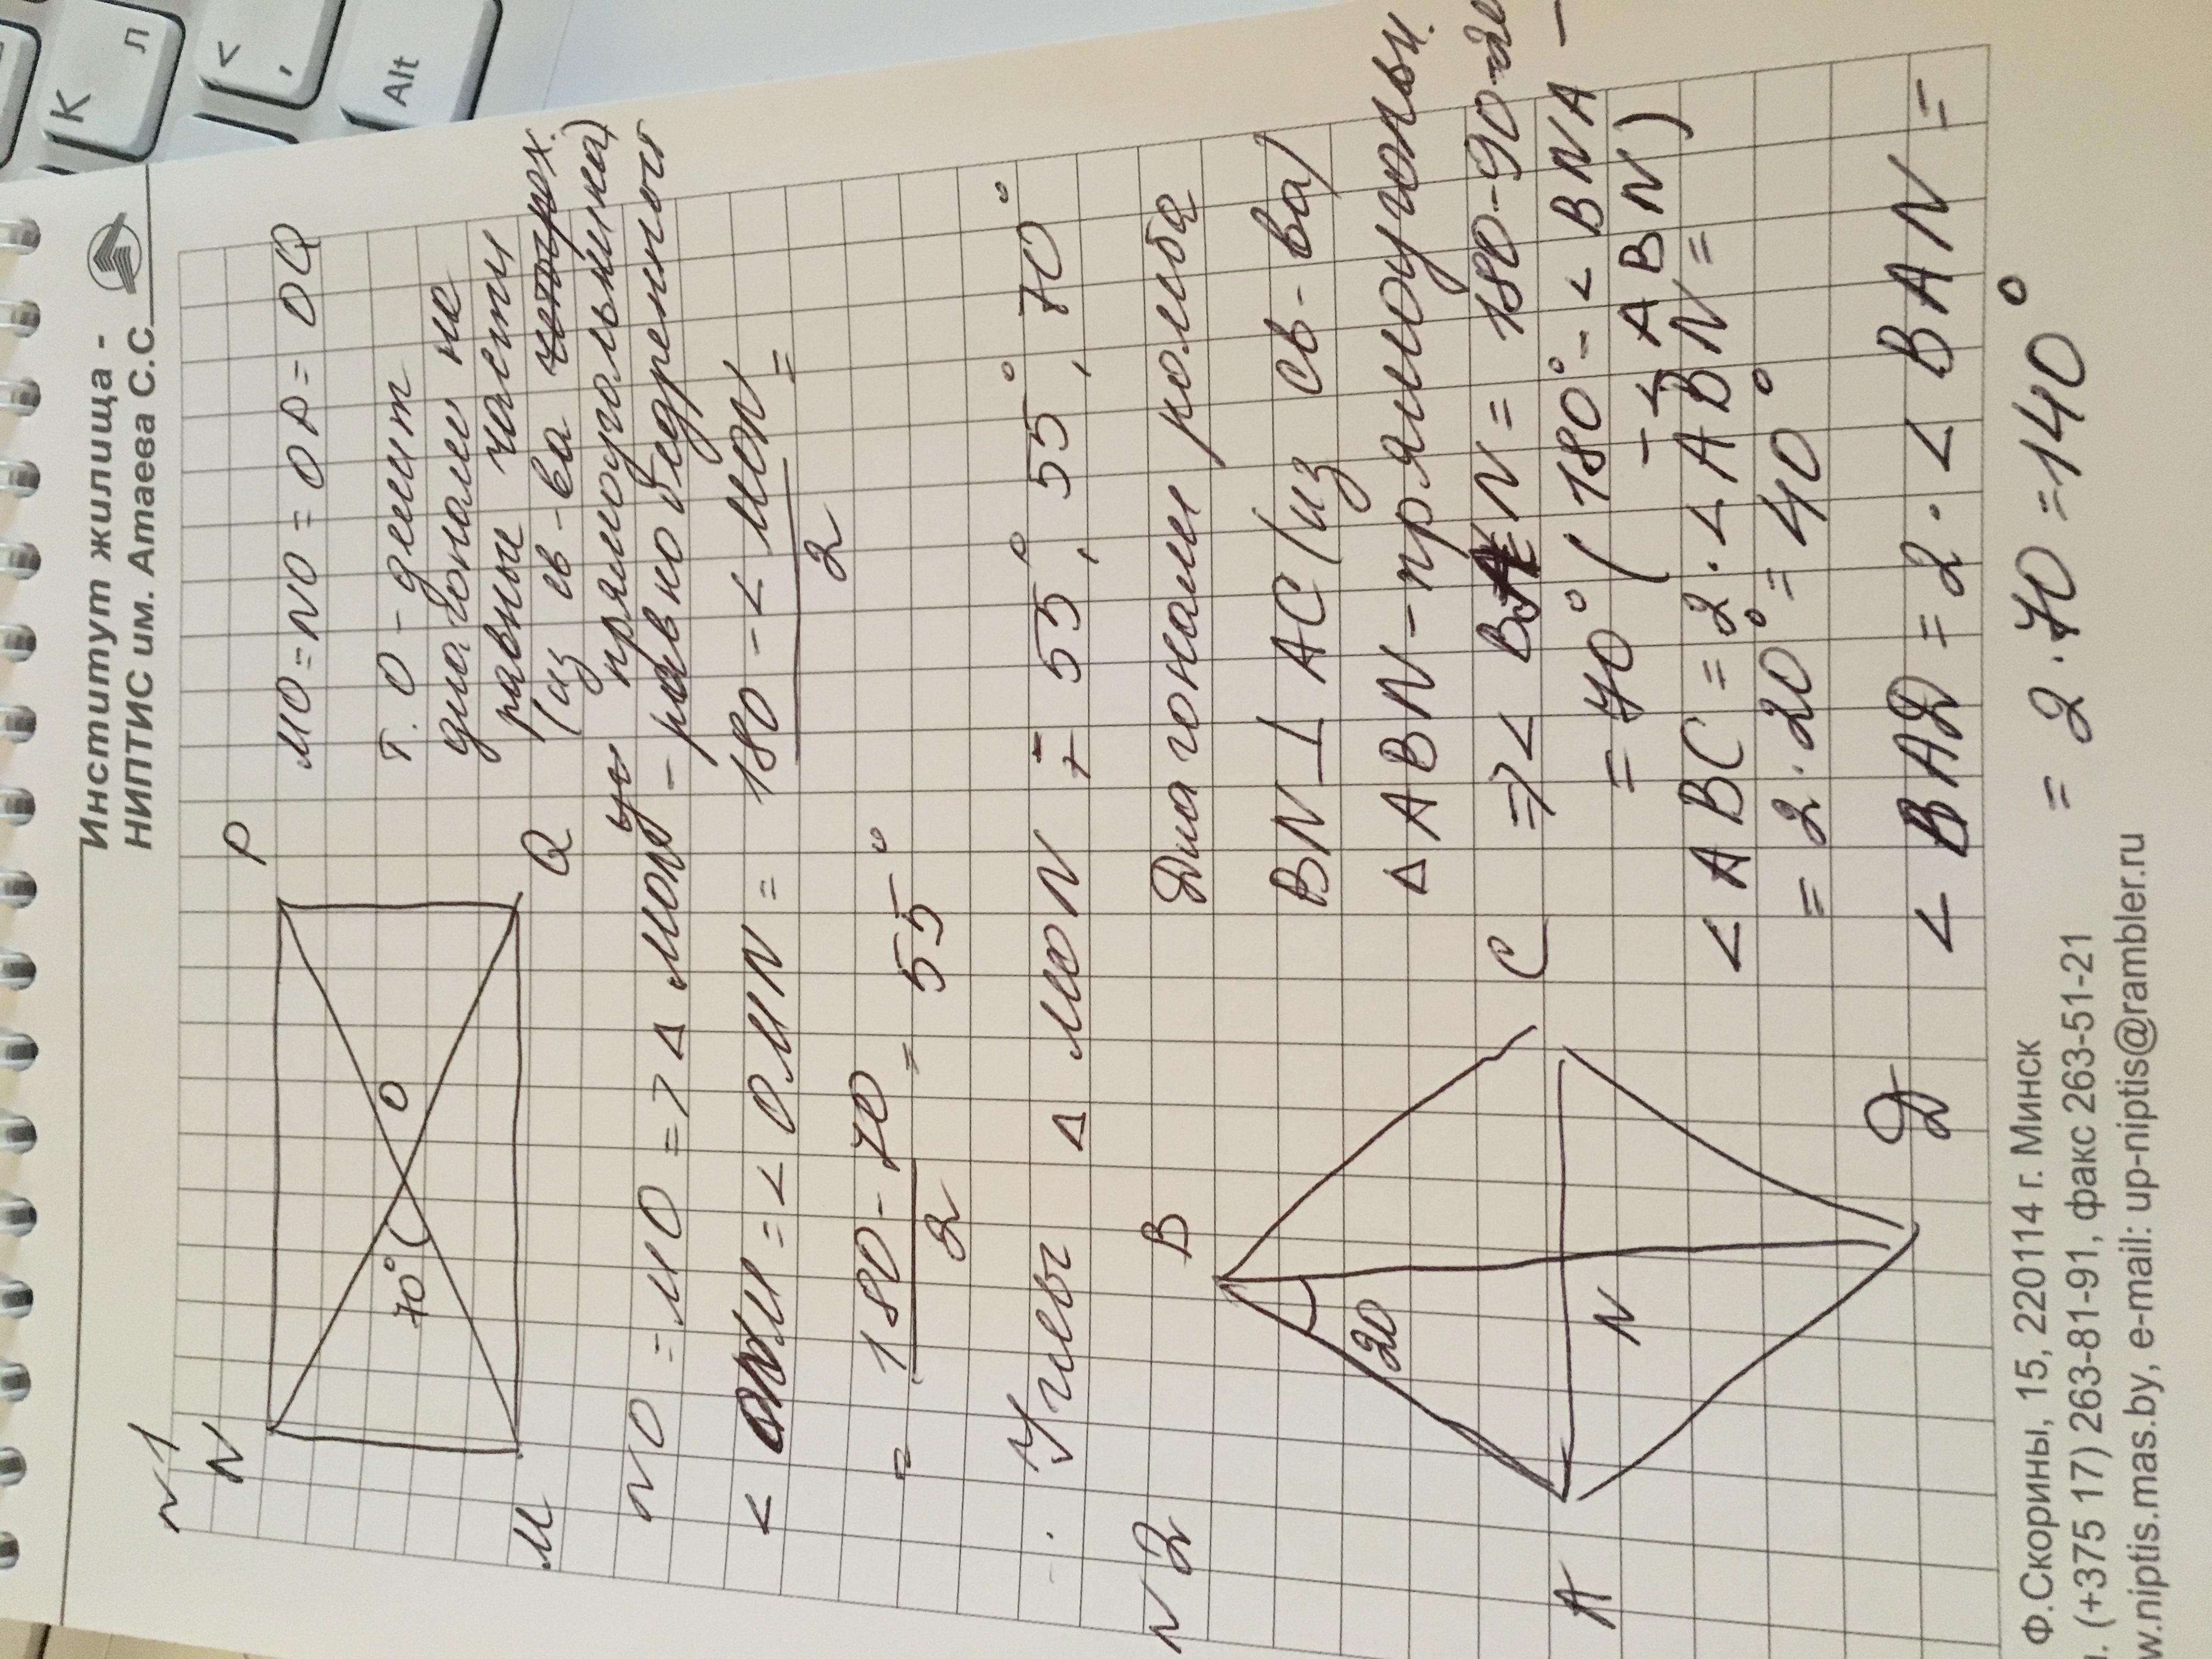 К
Л
<
,
Alt
Институт жилища -
НИПТИС им. Атаева С.С.
N1
N
P
70°
O
M
Q
MO = NO = OP = OQ
т. O - делит
диагонали на
равные части
(из св-ва
прямоугольника)
NO = MO => Δ MON - равнобедренный
у
< ONM = < OMN = 180 - < MON / 2 =
= 180 - 70 / 2 = 55°
Углы Δ MON = 55°, 55°, 70°
N2
B
20
A
N
C
D
Диагонали ромба
BN ⊥ AC (из св-ва)
Δ ABN - прямоугольн.
=> < BAN = 180-90-20
= 70° (180° - < BNA -
- < ABN)
< ABC = 2 · < ABN =
= 2 · 20° = 40°
< BAD = 2 · < BAN =
= 2 · 70 = 140°
Ф.Скорины, 15, 220114 г. Минск
. (+375 17) 263-81-91, факс 263-51-21
w.niptis.mas.by, e-mail: up-niptis@rambler.ru